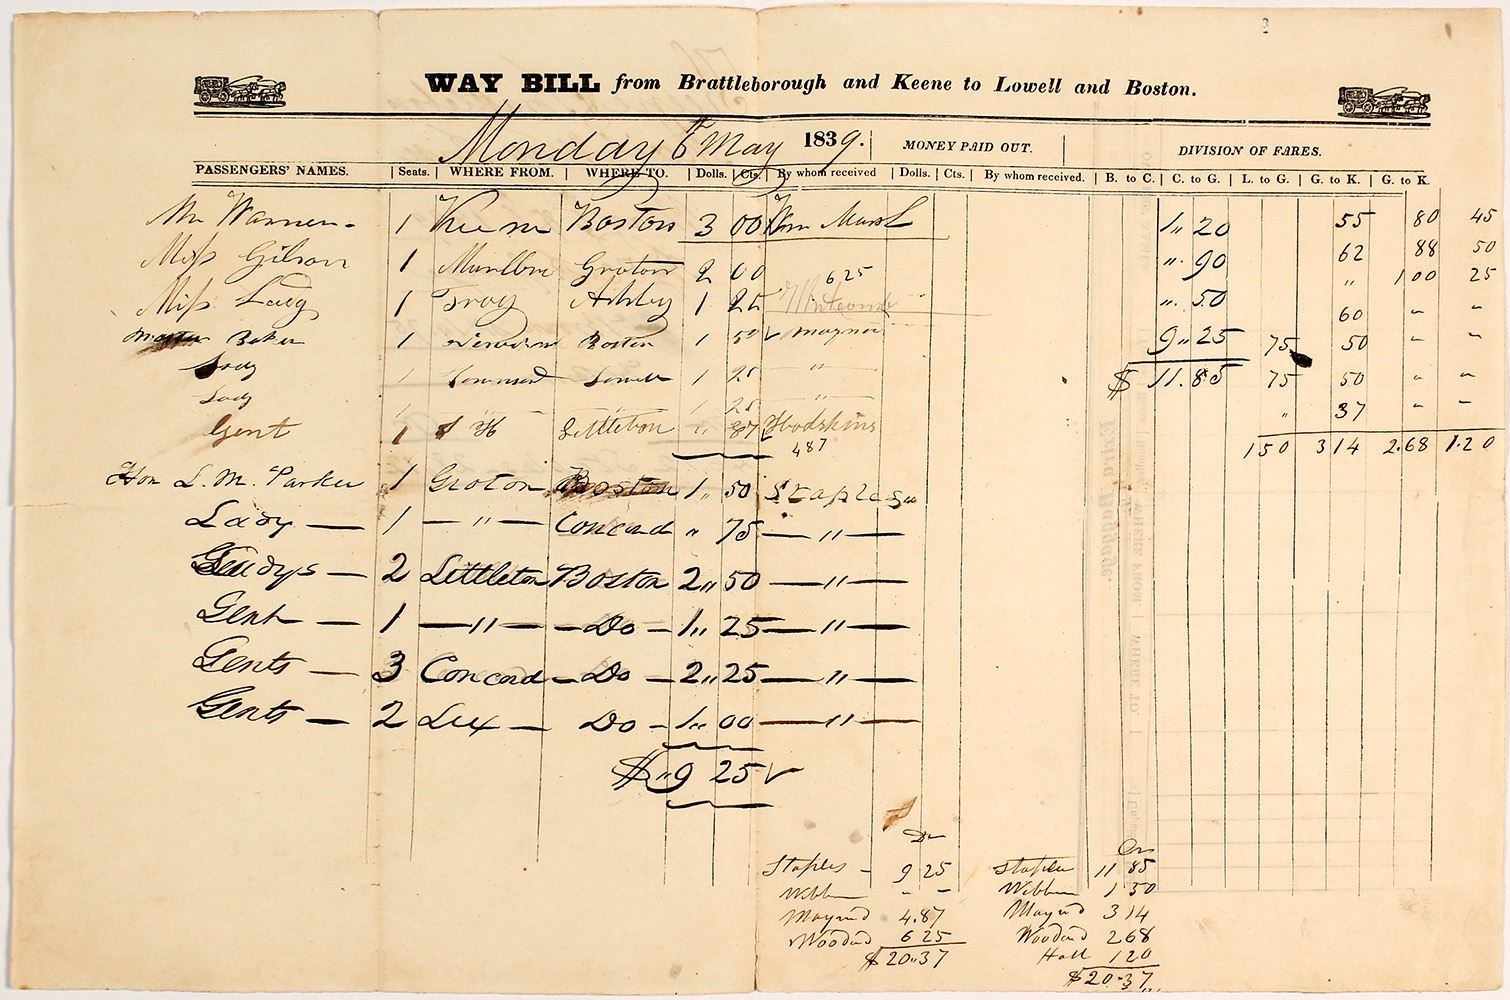 WAY BILL from Brattleborough and Keene to Lowell and Boston.
Monday 6th May 1839. MONEY PAID OUT. DIVISION OF FARES.
PASSENGERS' NAMES. Seats. WHERE FROM. WHERE TO. Dolls. Cts. By whom received Dolls. Cts. By whom received. B. to C. C. to G. L. to G. G. to K. G. to K.
Mr Warren - 1 Keene Boston 3 00 Wm Marsh 1,, 20 55 80 45
Miss Gilson 1 Marlboro Groton 2 00 625 ,, 90 62 88 50
Miss Lady 1 Troy Ashby 1 25 ,, 50 ,, 1 00 25
Master Baker 1 Boston 1 50 9,, 25 75 60 " "
Lady 1 Townsend Lowell 1 25 " $ 11.85 75 50 " "
Lady 1 " " 1 25 " 50 " "
Gent 1 " Littleton ,, 87 Hodskins " 37 " "
487 1 50 3 14 2.68 1.20
Hon L. M. Parker 1 Groton Boston 1,, 50 Staples
Lady — 1 — " — Concord ,, 75 — " —
— 2 Littleton Boston 2,, 50 — " —
Gent — 1 — " — - Do - 1,, 25 — " —
Gents — 3 Concord - Do - 2,, 25 — " —
Gents — 2 Lex - Do - 1,, 00 — " —
$ ,, 9 25 ✓
Dr Crs
Staples - 9 25 Staples 11 85
Webber - - Webber 1 50
Maynd 4.87 Maynd 3 14
Woodard 6 25 Woodard 2 68
$ 20.37 Hall 1 20
$ 20.37